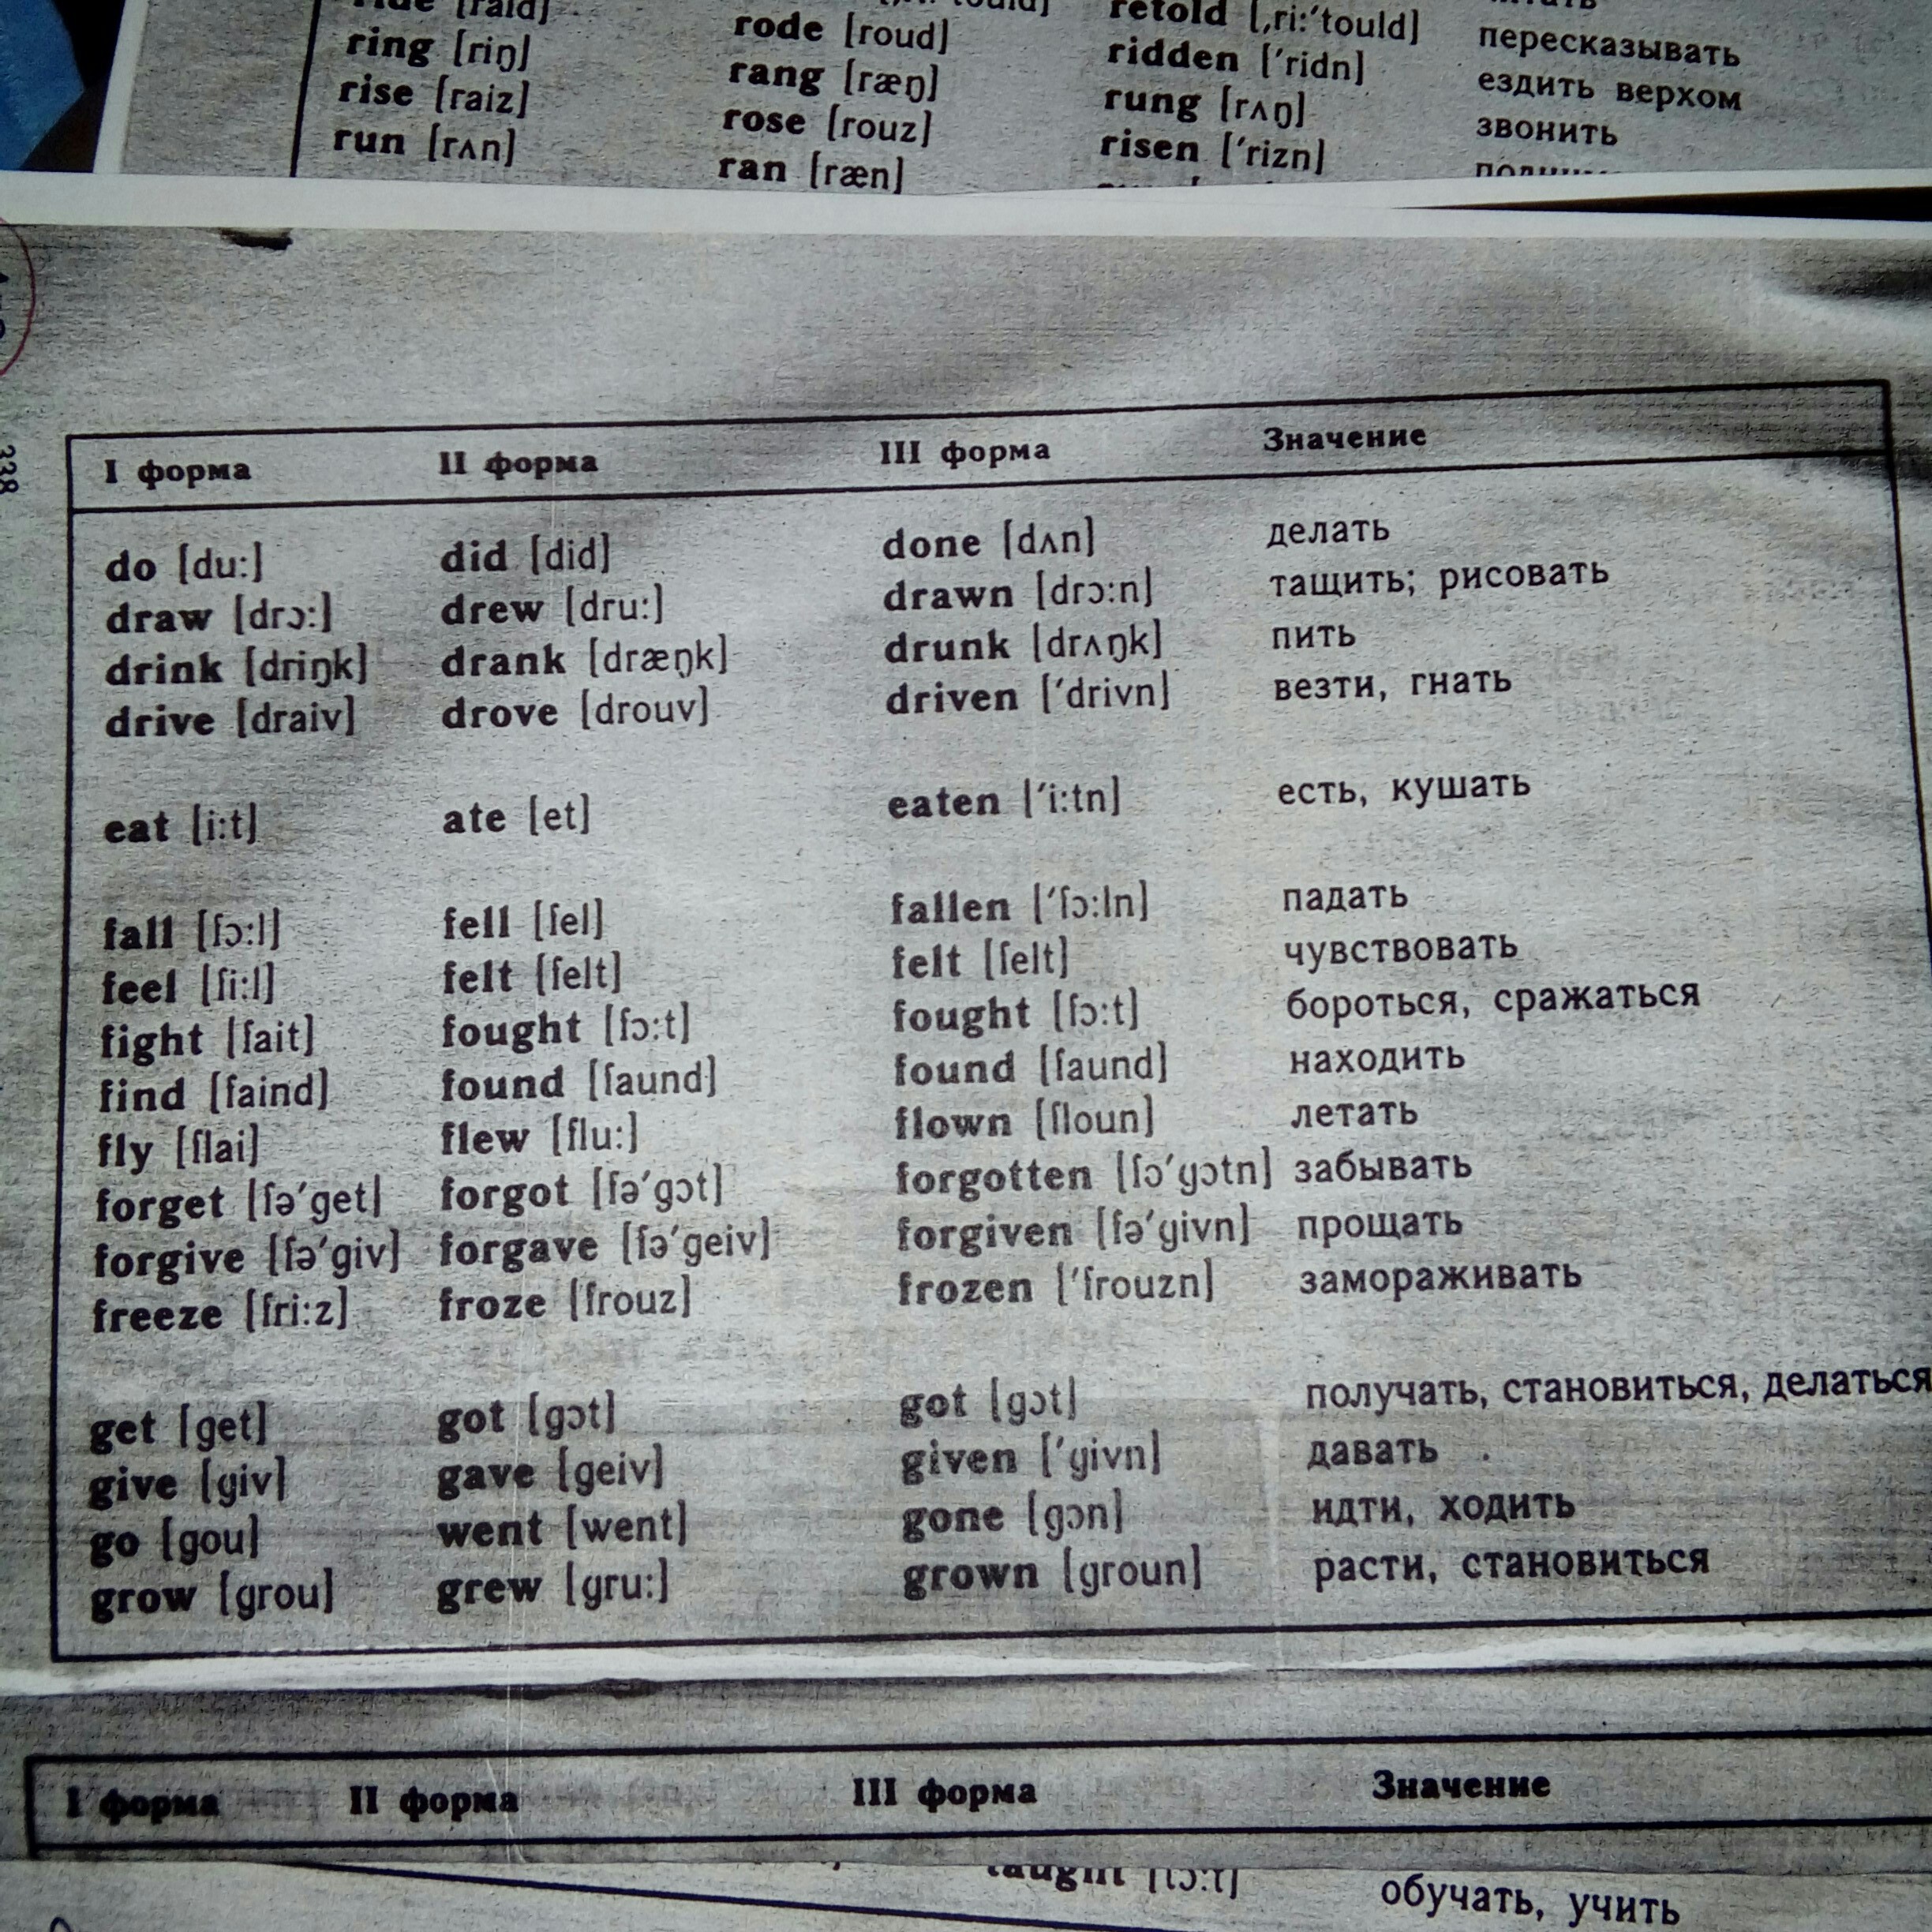 ride [raid] retold [ˌri:ˈtould]
ring [riŋ] rode [roud] ridden [ˈridn] пересказывать
rise [raiz] rang [ræŋ] rung [rʌŋ] ездить верхом
run [rʌn] rose [rouz] risen [ˈrizn] звонить
ran [ræn]
338
I форма II форма III форма Значение
do [du:] did [did] done [dʌn] делать
draw [drɔ:] drew [dru:] drawn [drɔ:n] тащить; рисовать
drink [driŋk] drank [dræŋk] drunk [drʌŋk] пить
drive [draiv] drove [drouv] driven [ˈdrivn] везти, гнать
eat [i:t] ate [et] eaten [ˈi:tn] есть, кушать
fall [fɔ:l] fell [fel] fallen [ˈfɔ:ln] падать
feel [fi:l] felt [felt] felt [felt] чувствовать
fight [fait] fought [fɔ:t] fought [fɔ:t] бороться, сражаться
find [faind] found [faund] found [faund] находить
fly [flai] flew [flu:] flown [floun] летать
forget [fəˈget] forgot [fəˈgɔt] forgotten [fɔˈgɔtn] забывать
forgive [fəˈgiv] forgave [fəˈgeiv] forgiven [fəˈgivn] прощать
freeze [fri:z] froze [frouz] frozen [ˈfrouzn] замораживать
get [get] got [gɔt] got [gɔt] получать, становиться, делаться
give [giv] gave [geiv] given [ˈgivn] давать
go [gou] went [went] gone [gɔn] идти, ходить
grow [grou] grew [gru:] grown [groun] расти, становиться
I форма II форма III форма Значение
taught [tɔ:t] обучать, учить